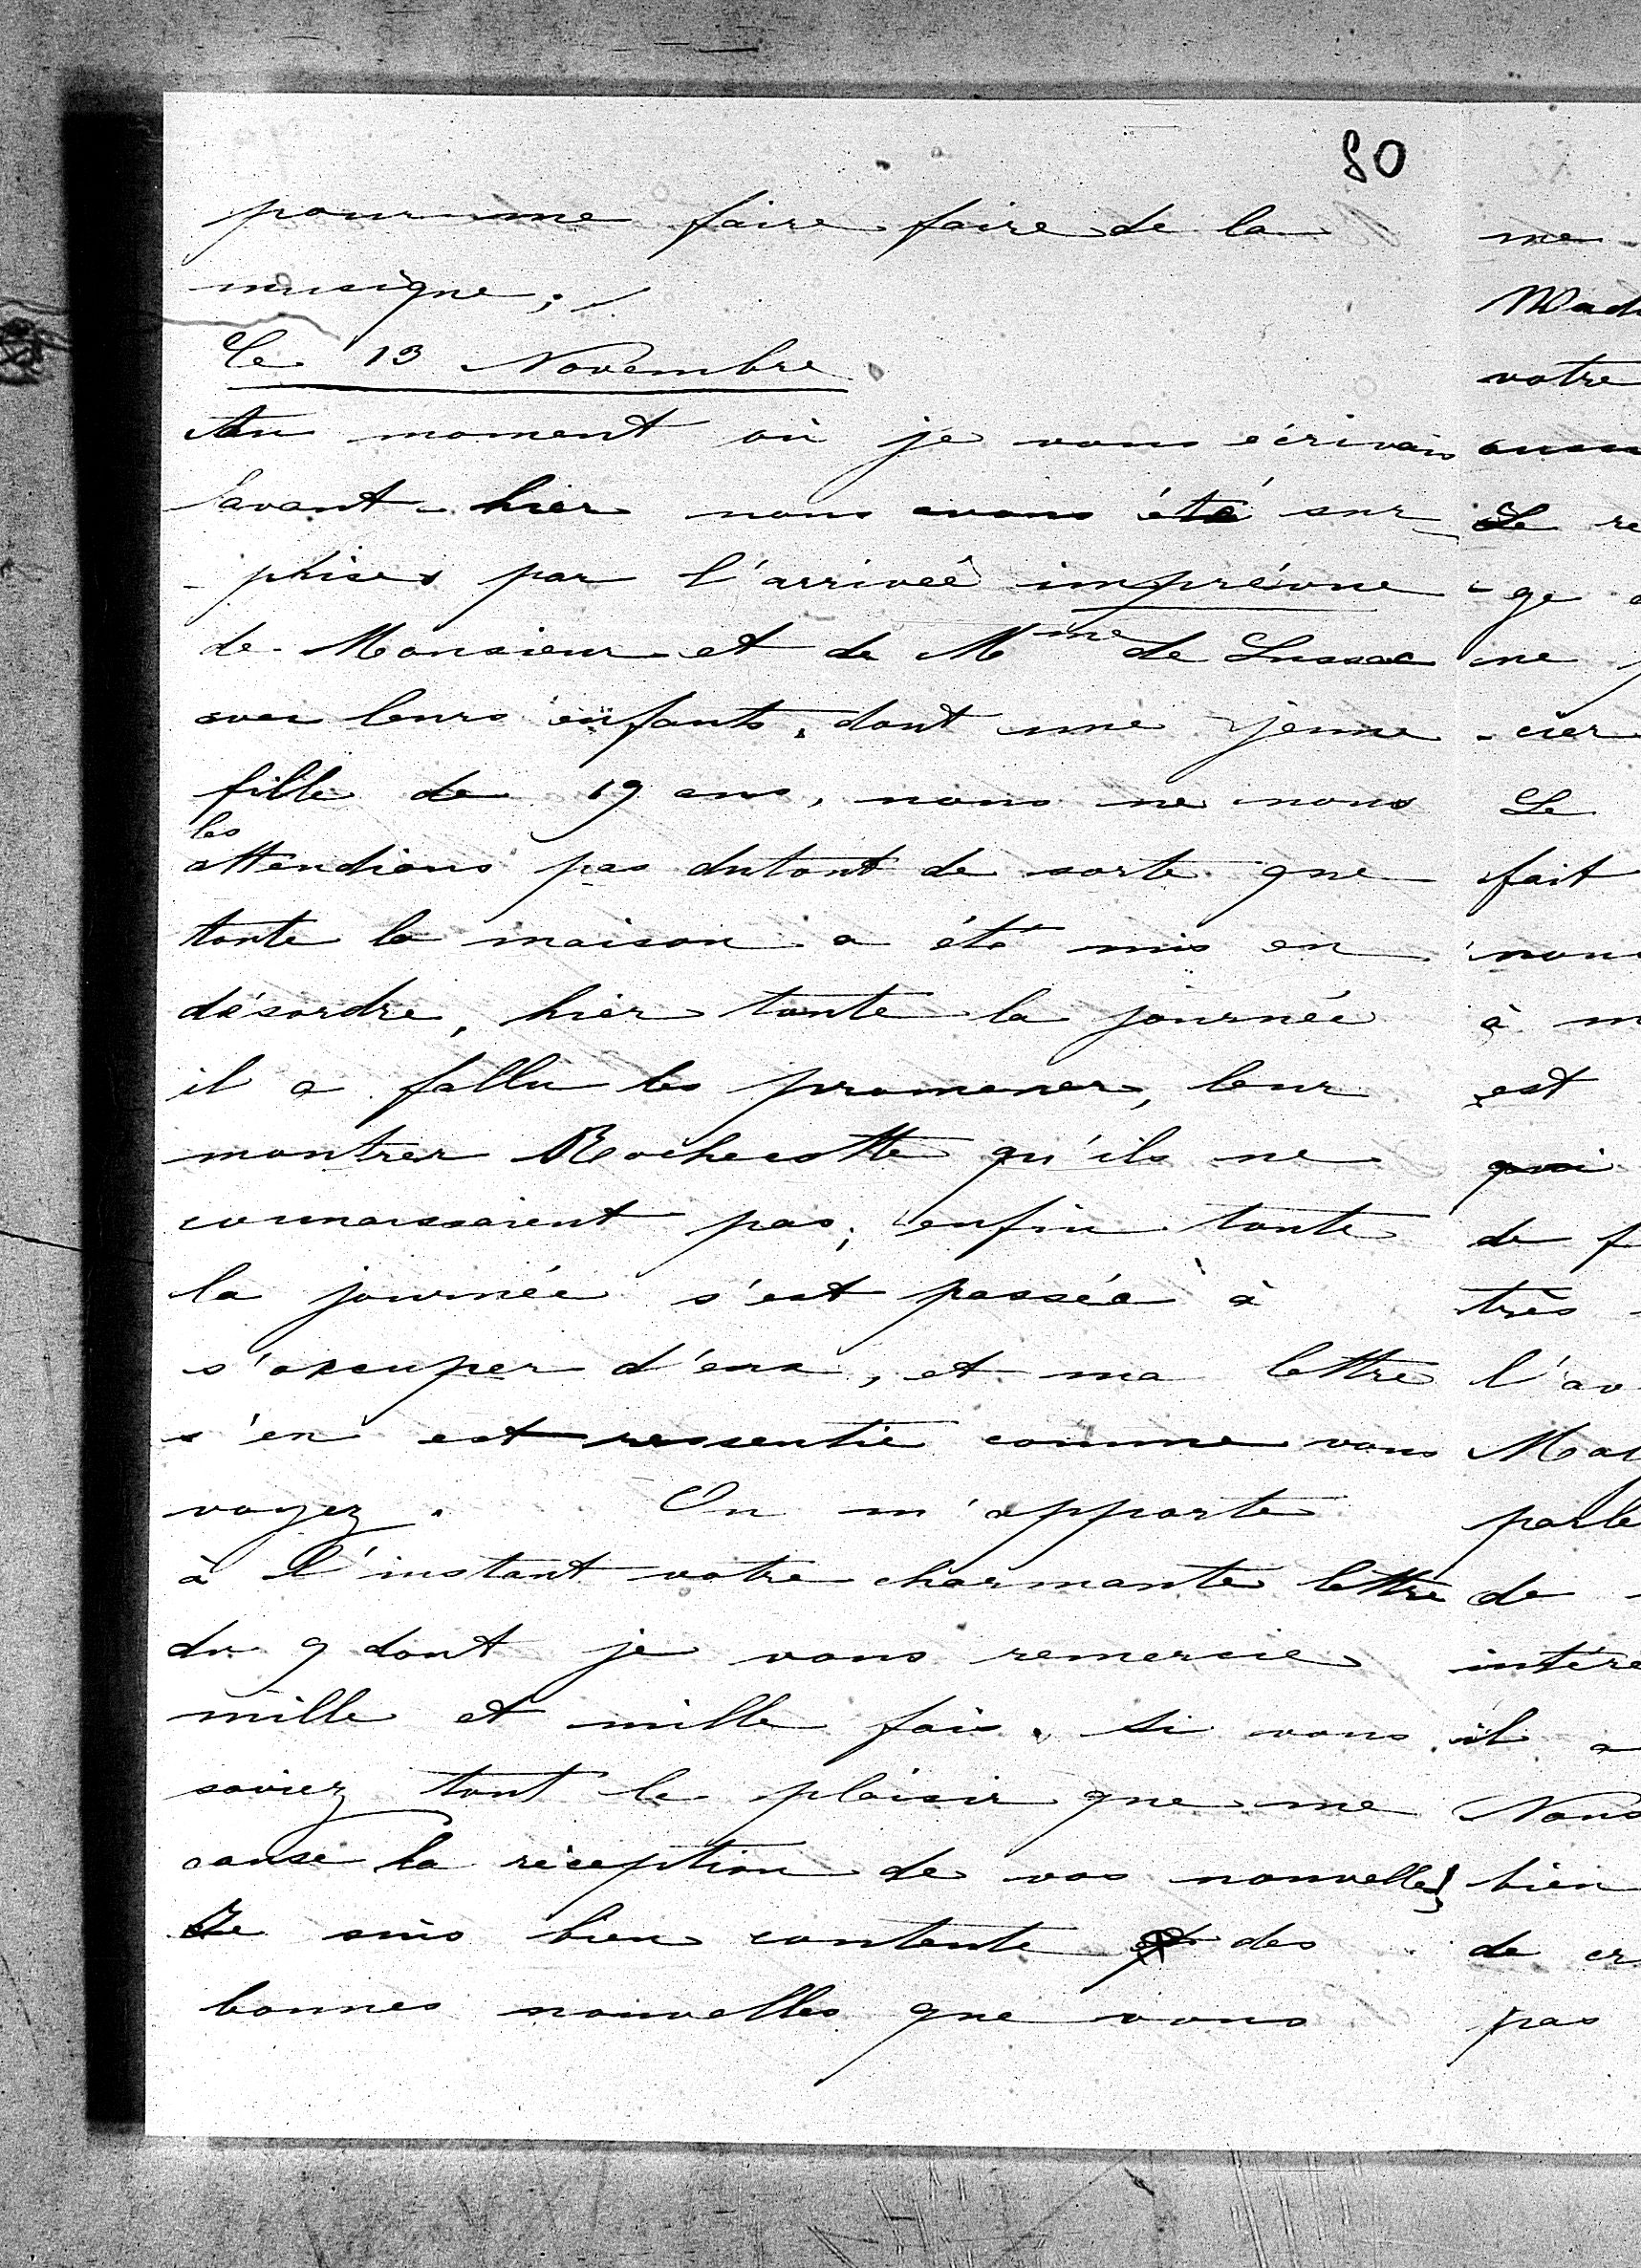 80
pour me faire faire de la
musique ; /
Le 13 Novembre
Au moment où je vous écrivais
avant-hier nous avons été sur-
-prises par l'arrivée imprévue
de Monsieur et de Mme de Lussac
avec leurs enfants, dont une jeune
fille de 19 ans, nous ne nous
les
attendions pas dutout de sorte que
toute la maison a été mis en
désordre, hier toute la journée
il a fallu les promener, leur
montrer Rochecotte qu'ils ne
connaissaient pas ; enfin toute
la journée s'est passée à
s'occuper d'eux, et ma lettre
s'en est ressentie comme vous
voyez. On m'apporte
à l'instant votre charmante lettre
du 9 dont je vous remercie
mille et mille fois. Si vous
saviez tout le plaisir que me
cause la réception de vos nouvelles
Je suis bien contente des
bonnes nouvelles que vous
me
Mad
votre
Le re
-ge
ne
-cier
Le
fait
nou
à m
est
quoi
de f
très
l'av
parle
de
intére
il a
Nous
bien
de cr
pas